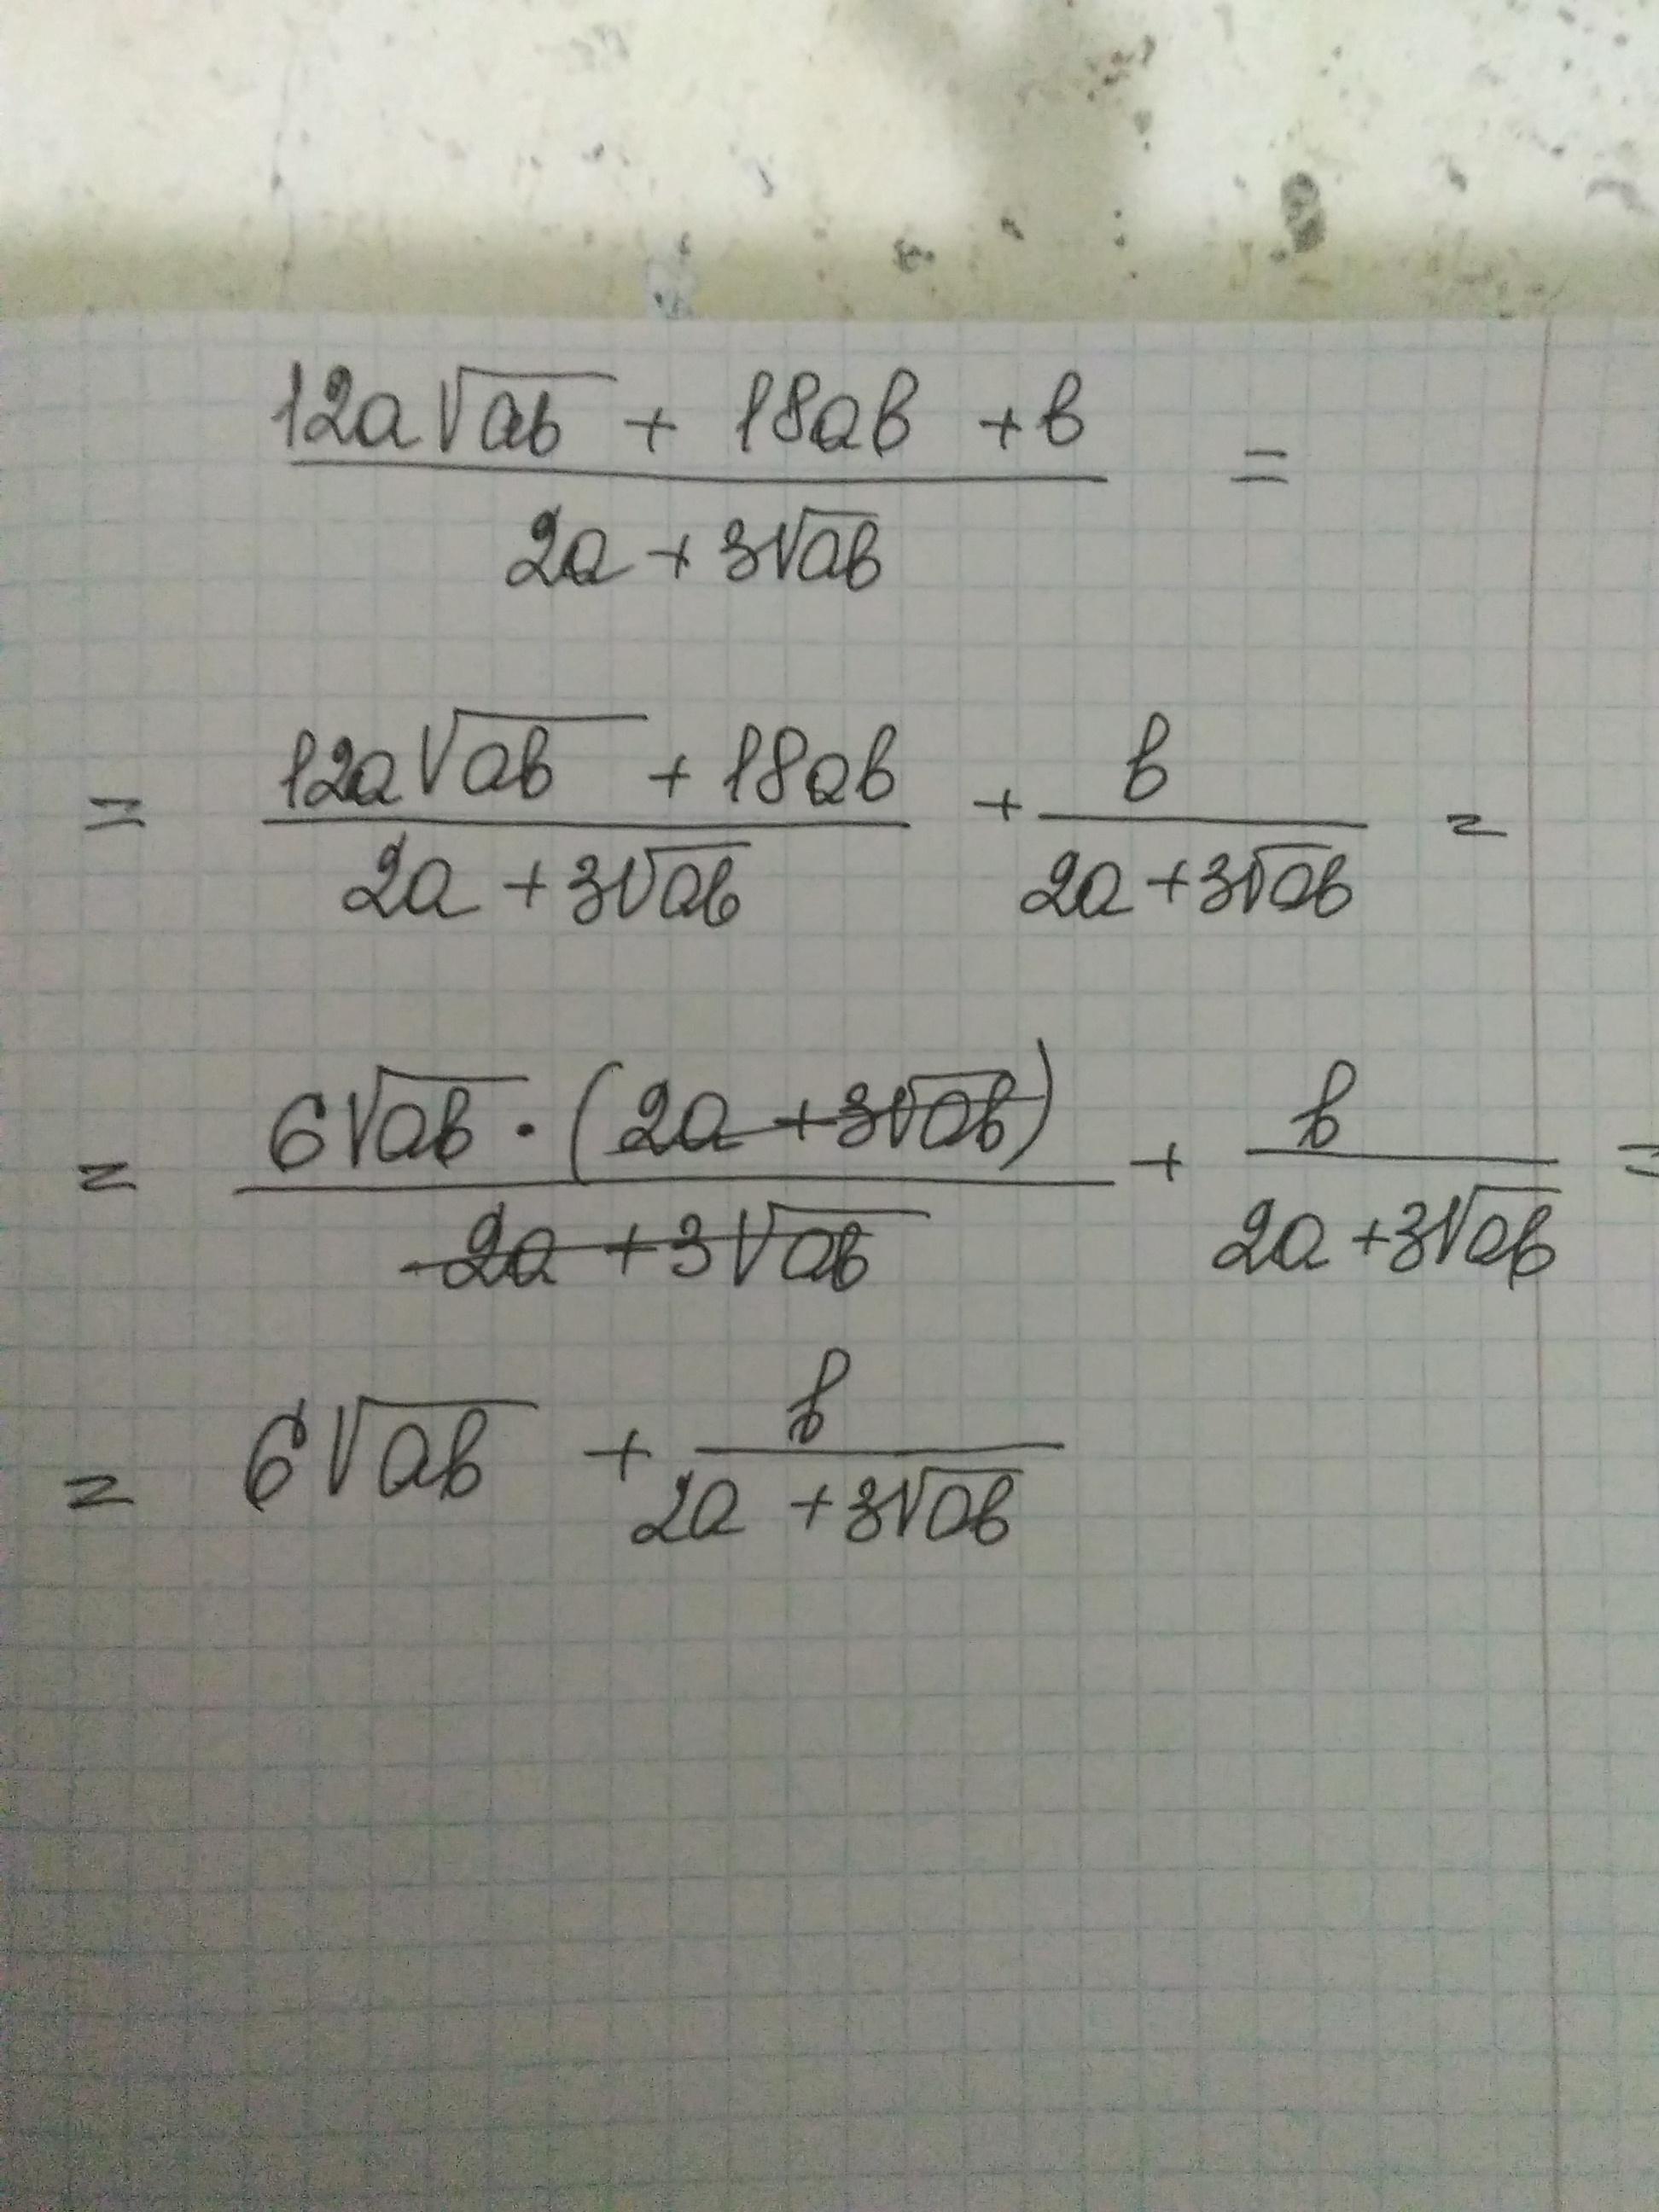 (12a√(ab) + 18ab + b) / (2a + 3√(ab)) =
= (12a√(ab) + 18ab) / (2a + 3√(ab)) + b / (2a + 3√(ab)) =
= (6√(ab) · (2a + 3√(ab))) / (2a + 3√(ab)) + b / (2a + 3√(ab)) =
= 6√(ab) + b / (2a + 3√(ab))